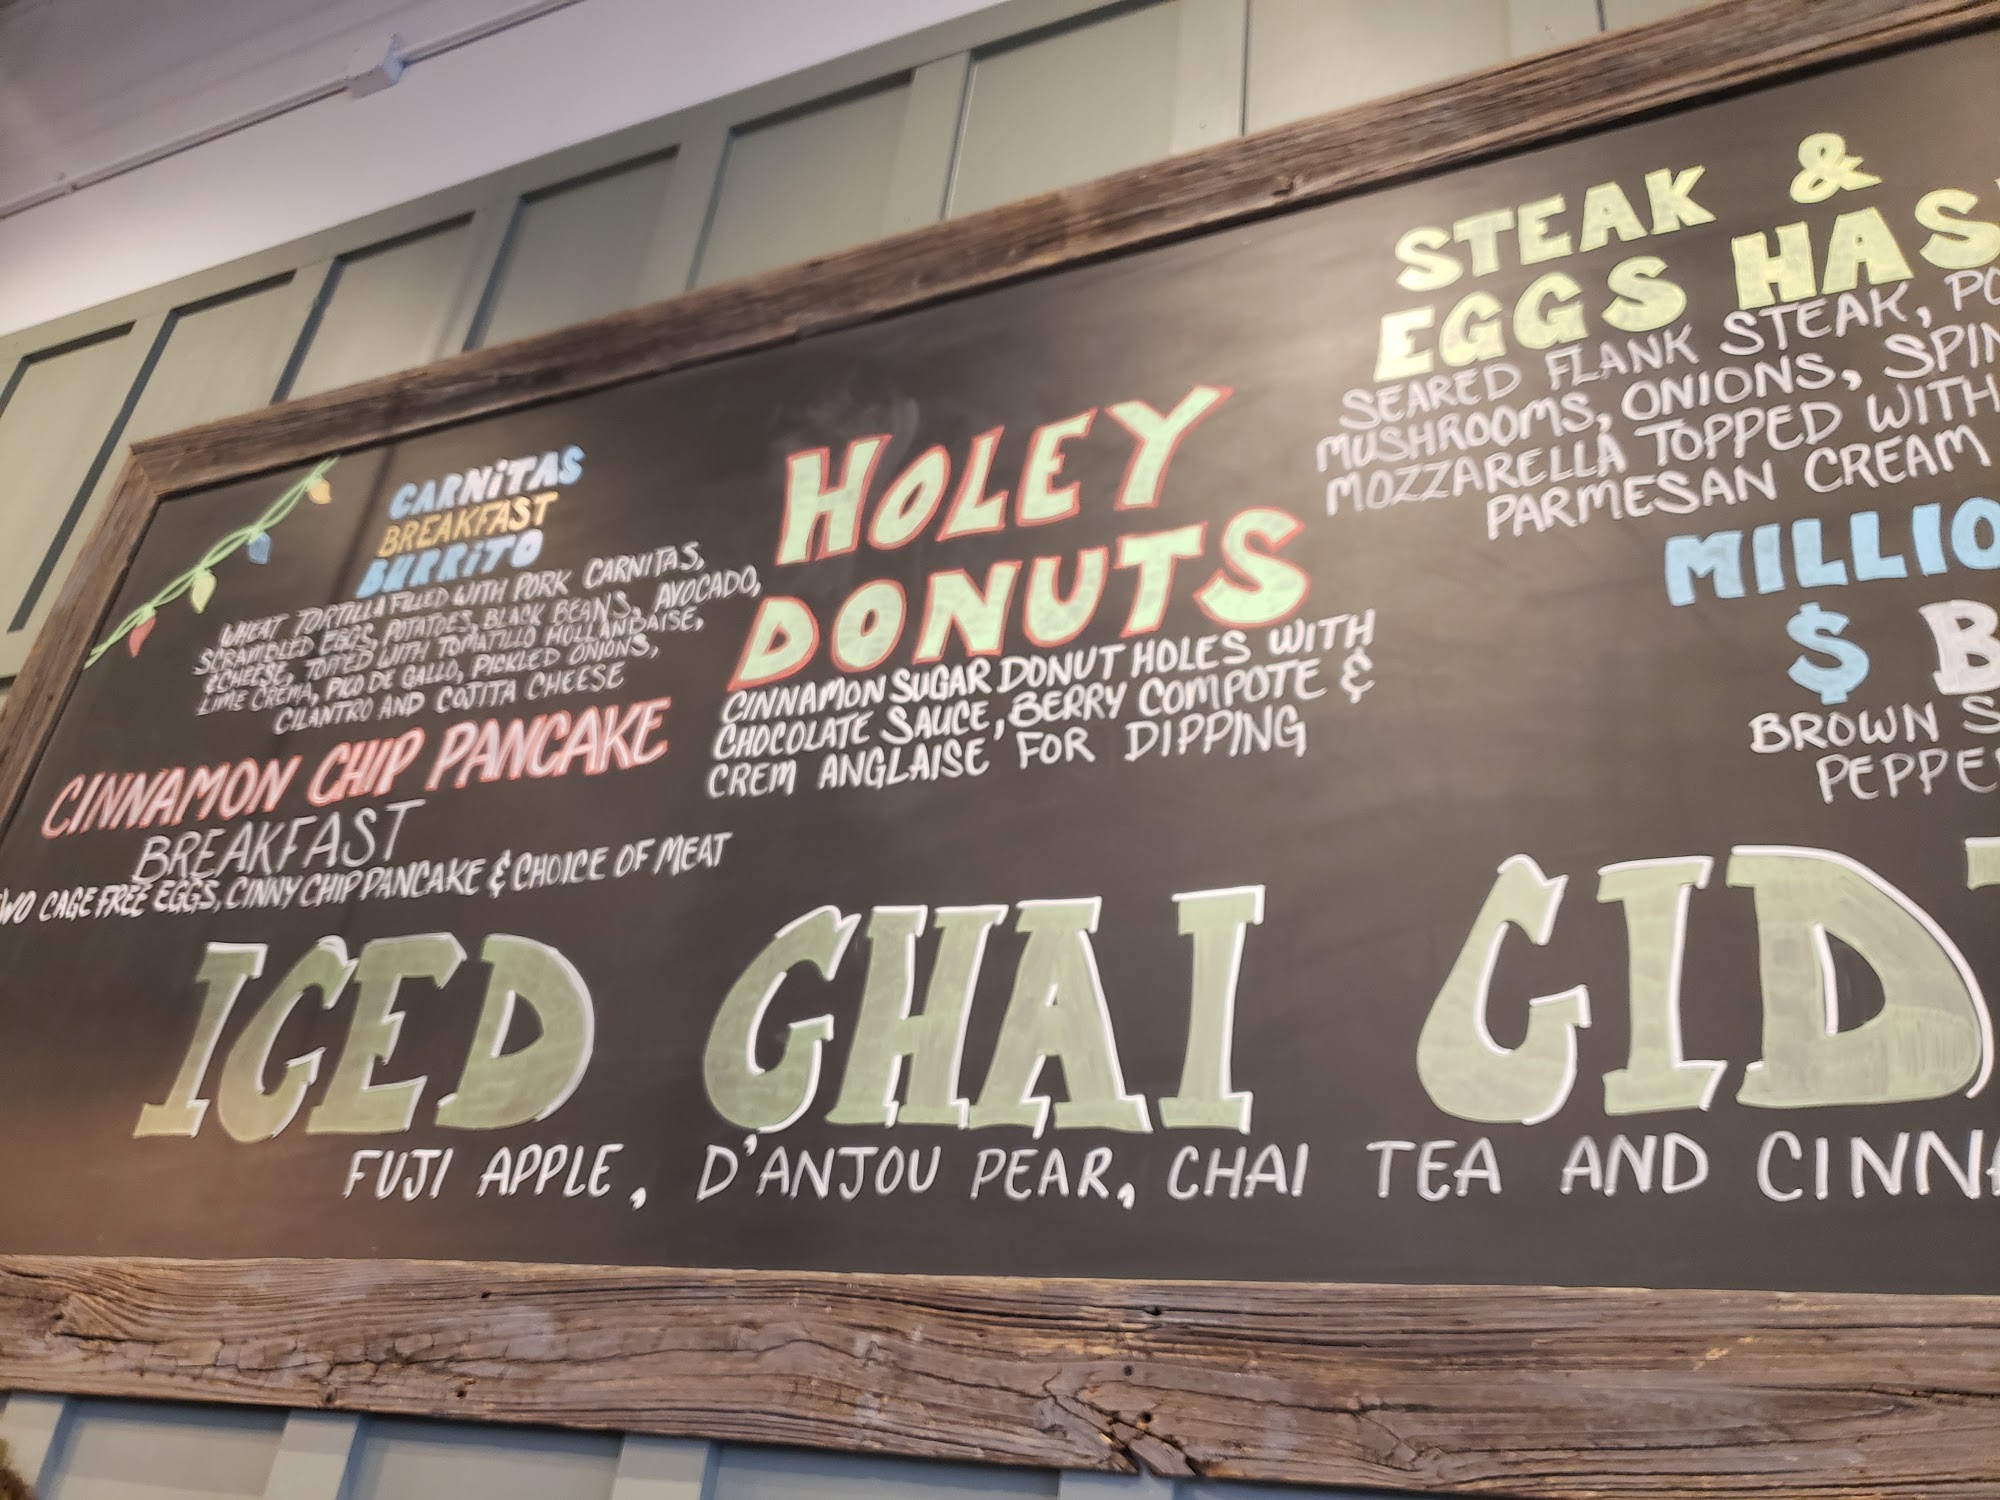 CARNiTAS
BREAKFAST
BURRiTO
WHEAT TORTILLA FILLED WITH PORK CARNITAS,
SCRAMBLED EGGS, POTATOES, BLACK BEANS, AVOCADO,
& CHEESE, TOPPED WITH TOMATILLO HOLLANDAISE,
LIME CREMA, PICO DE GALLO, PICKLED ONIONS,
CILANTRO AND COJITA CHEESE
CINNAMON CHIP PANCAKE
BREAKFAST
WO CAGE FREE EGGS, CINNY CHIP PANCAKE & CHOICE OF MEAT
HOLEY
DONUTS
CINNAMON SUGAR DONUT HOLES WITH
CHOCOLATE SAUCE, BERRY COMPOTE &
CREM ANGLAISE FOR DIPPING
STEAK &
EGGS HAS
SEARED FLANK STEAK, PO
MUSHROOMS, ONIONS, SPIN
MOZZARELLA TOPPED WITH
PARMESAN CREAM
MILLIO
$ B
BROWN S
PEPPE
ICED CHAI CID
FUJI APPLE, D'ANJOU PEAR, CHAI TEA AND CINNA